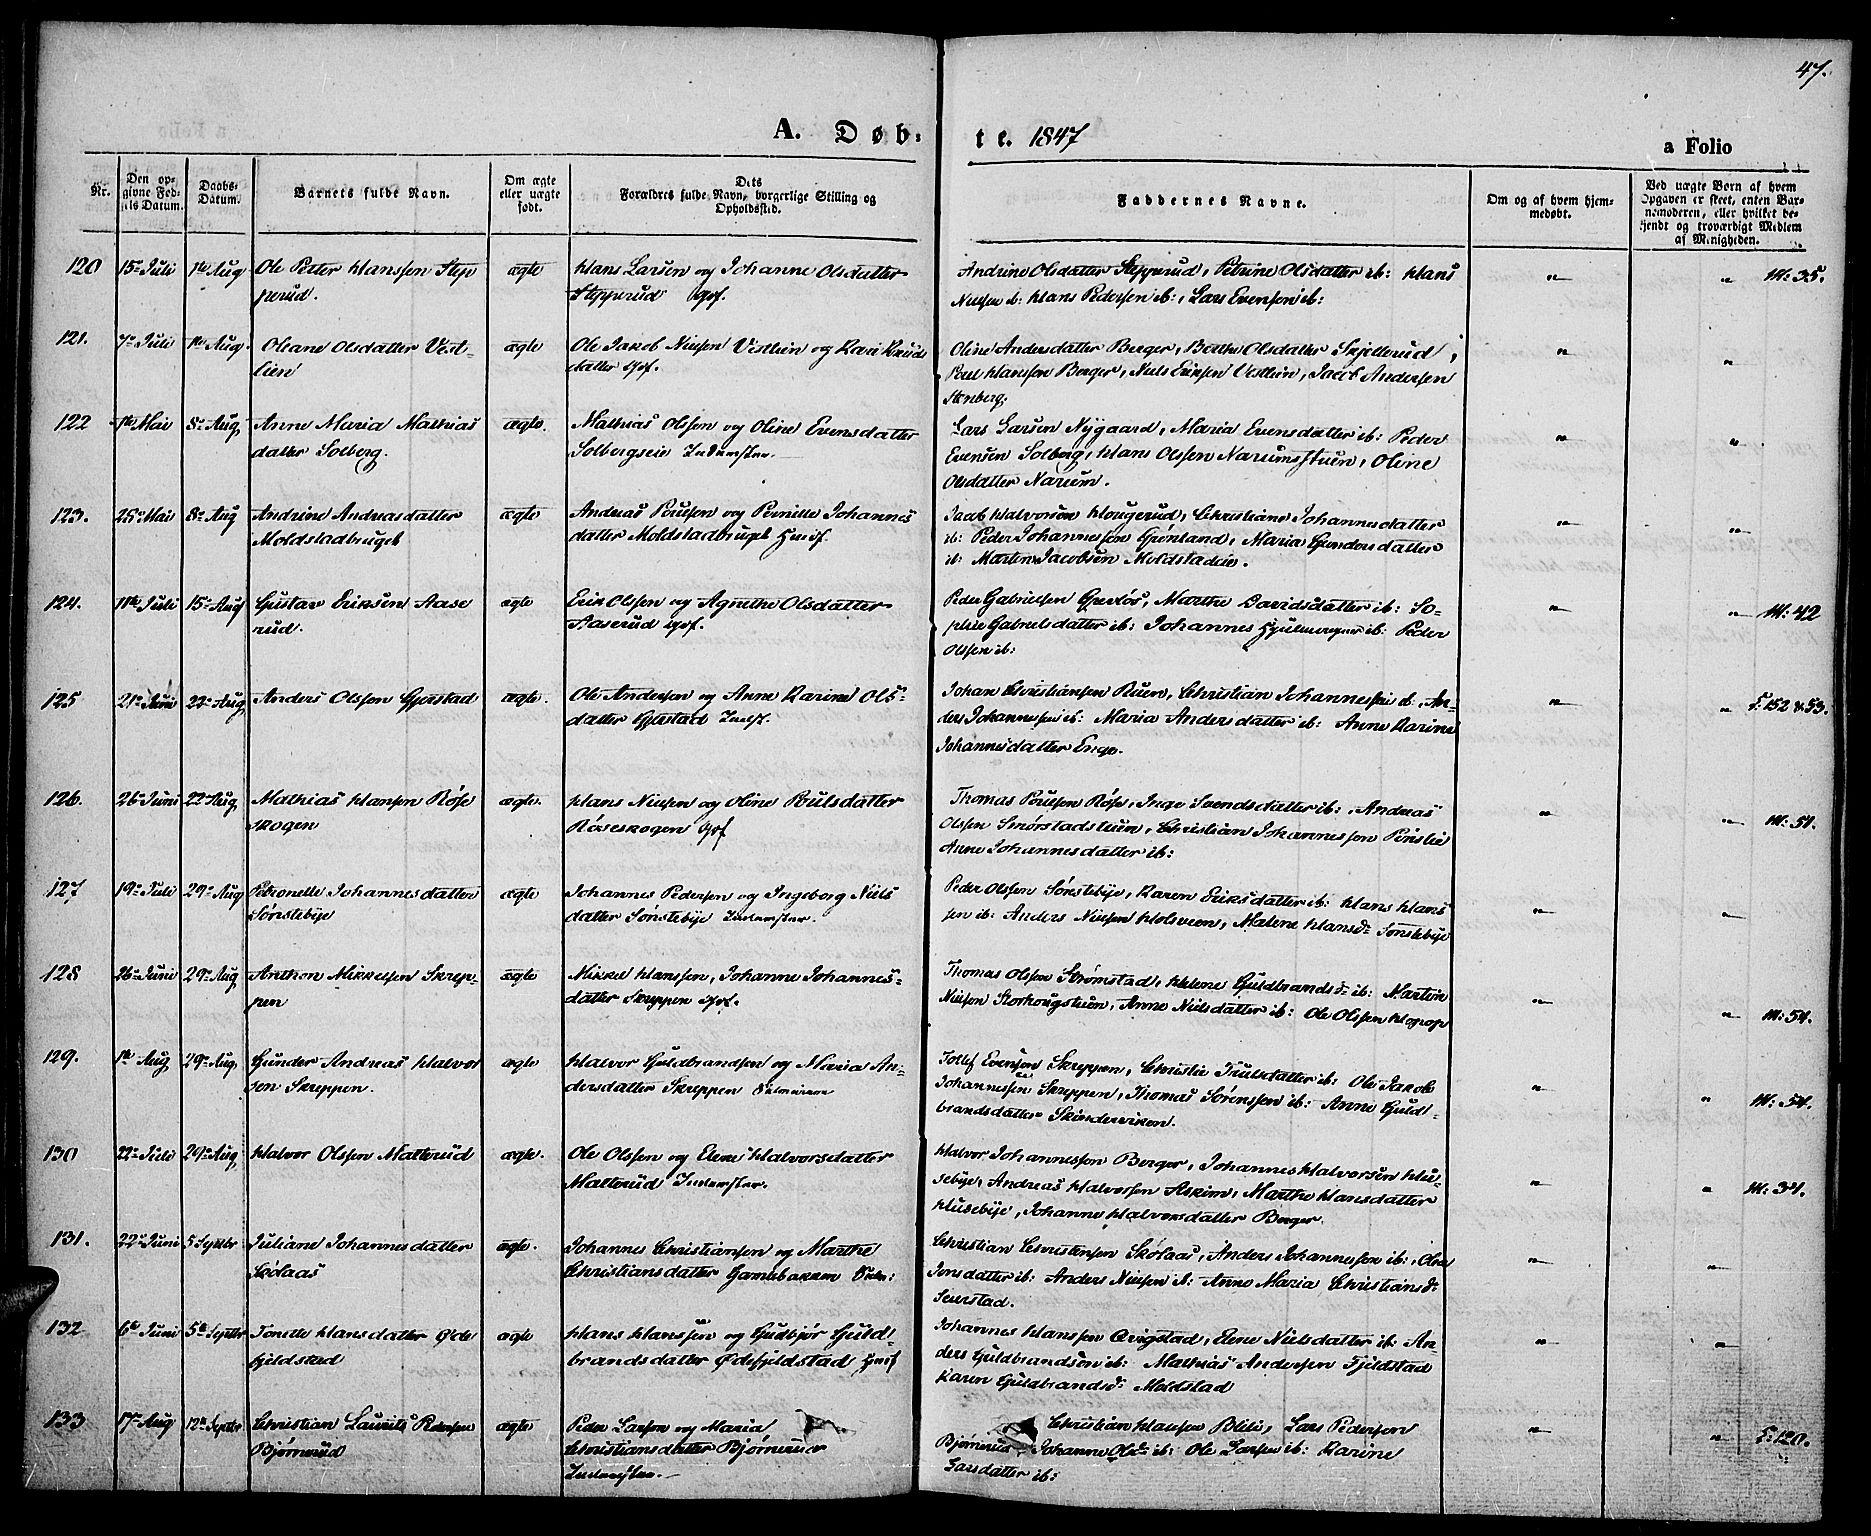 47.
A. Døb-
te. 1847
a Folio
Nr.
Den opgivne Fødsels Datum.
Daabs-Datum.
Barnets fulde Navn.
Om ægte eller uægte født.
Dets Forældres fulde Navn, borgerlige Stilling og Opholdssted.
Faddernes Navne.
Om og af hvem hjemmedøbt.
Ved uægte Børn af hvem Opgaven er skeet, enten Barnemoderen, eller hvilket bekjendt og troværdigt Medlem af Menigheden.
120 15de Juli 1ste Aug Ole Petter Hanssen Step
perud.
ægte
Hans Larsen og Johanne Olsdatter
Stepperud Gbf.
Andrine Olsdatter Stepperud, Petrine Olsdatter ib: Hans
Nielsen ib: Hans Pedersen ib:, Lars Evensen ib:
" " M: 35.
121. 7de Juli 1ste Aug. Oleane Olsdatter Vest-
lien
ægte
Ole Jakob Nielsen Vestlien og Kari Knuds
datter Gbf.
Oline Andersdatter Berger, Berthe Olsdatter Skjellerud,
Poul Hanssen Berger, Niels Eriksen Vestlien, Jacob Andersen
Stenberg.
" "
122 1ste Mai 8de Aug Anne Maria Mathias
datter Solberg.
ægte.
Mathias Olssen og Oline Evensdatter
Solbergseie Inderster.
Lars Larsen Nygaard, Maria Evensdatter ib: Peder
Evensen Solberg, Hans Olssen Narumstuen, Oline
Olsdatter Narum.
" "
123. 25de Mai 8de Aug Andrine Andreasdatter
Moldstadbruget
ægte
Andreas Poulsen og Pernille Johannes
datter Moldstadbruget Husf.
Jacob Halvorsen Hougerud, Christiane Johannesdatter
ib: Peder Johannessen Grönland, Maria Gundersdatter
ib: Marten Jacobsen Moldstadeie.
" "
124. 11te Juli 15de Aug Gustav Eriksen Aase
rud.
ægte
Erik Olssen og Agnethe Olsdatter
Aaserud Gbf.
Peder Gabrielsen Grevlös, Marthe Davidsdatter ib: So-
phie Gabrielsdatter ib: Johannes ib: Peder
Olssen ib:
" " M: 42
125 21de Juni 22de Aug Anders Olssen Gjerstad
ægte.
Ole Andersen og Anne Karine Ols-
datter Gjerstad Indst.
Johan Christiansen Ruen, Christian Johannessen ib:, An-
ders Johannessen ib: Maria Andersdatter ib: Anne Karine
Johannesdatter Enge.
" " F. 152 & 53.
126. 26de Juni 22de Aug Mathias Hansen Röse
skogen
ægte.
Hans Nielsen og Oline Poulsdatter
Röseskogen Gbf
Thomas Poulsen Röse, Inge Svendsdatter ib:, Andreas
Olssen Smörstadstuen, Christian Johannessen
Anne Johannesdatter ib:
" " M: 51.
127 19de Juli 29de Aug Petronelle Johannesdatter
Sönstebye
ægte
Johannes Pedersen og Ingeborg Niels
datter Sönstebye Inderster.
Peder Olssen Sönstebye, Karen Eriksdatter ib: Hans Hans
sen ib: Anders Nielsen Holsveen, Malene Hansd: Sönstebye
" "
128 26de Juni 29de Aug Anthon Mikkelsen Skrep-
pen
ægte
Mikkel Hanssen, Johanne Johannes-
datter Skreppen Gbf.
Thomas Olssen Strömstad, Helene Guldbrandsd: ib: Martin
Nielsen Storhougstuen, Anne Nielsdatter ib: Ole Olssen
" " M: 54.
129. 1ste Aug 29de Aug. Gunder Andreas Halvor
sen Skreppen.
ægte
Halvor Guldbrandsen og Maria An-
dersdatter Skreppen
Tollef Evensen Skreppen, Christie Truelsdatter ib: Ole Jakob
Johannessen Skreppen, Thomas Sörenssen ib: Anne Guld-
brandsdatter Skinderviken.
" " M: 54.
130 22de Juli 29de Aug. Halvor Olssen Malterud
ægte.
Ole Olssen og Elene Halvorsdatter
Malterud Inderster.
Halvor Johannessen Berger, Johannes Halvorsen Hu-
sebye, Andreas Halvorsen Askim, Marthe Hansdatter
Husebye, Johanne Halvorsdatter Berger.
" " M: 37.
131. 22de Juni 5 Septbr Juliane Johannesdatter
Skölaas
ægte.
Johannes Christiansen og Marthe
Christiansdatter Gamlebakken
Christian Christensen Skölaas, Anders Johannessen ib:, Olea
Jonsdatter ib: Anders Nielsen ib: Anne Maria Christiansd:
Seierstad.
" "
132 6te Juni 5te Septbr Tonette Hansdatter Öde
fjeldstad
ægte
Hans Hanssen og Gudbjör Guld-
brandsdatter Ödefjeldstad Husf
Johannes Hanssen Qvigstad, Elene Nielsdatter ib: An-
ders Guldbrandsen ib: Mathias Andersen Fjeldstad
Karen Guldbrandsd: Moldstad
" "
133 17de Aug 12te Septbr Christian Laurits Pedersen
Björnerud
ægte
Peder Larsen og Maria
Christiansdatter Björnerud
Inderster.
Christian Hansen Blili, Lars Pedersen
Björnerud, Johanne Olsd: ib: Ole Larsen ib: Karine
Larsdatter ib:
" " F: 120.